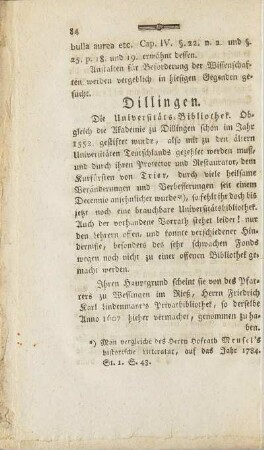 84
bulla aurea etc. Cap. IV. §. 22. n. 2. und §.
25. p. 18. und 19. erwähnt dessen.
Anstalten für Beförderung der Wissenschaf-
ten werden vergeblich in hiesigen Gegenden ge-
sucht.
Dillingen.
Die Universitäts-Bibliothek. Ob-
gleich die Akademie zu Dillingen schon im Jahr
1552. gestiftet wurde, also mit zu den ältern
Universitäten Teutschlands gezehlet werden muß,
und durch ihren Protector und Restaurator, dem
Korfürsten von Trier, durch viele heilsame
Veränderungen und Verbesserungen seit einem
Decennio ansehnlicher wurde*); so fehlt es bis
jezo noch eine brauchbare Universitätsbibliothek.
Auch der vorhandene Vorrath stehet leider! nur
den lehrern offen, und konnte verschiedener Hin-
dernisse, besonders des sehr schwachen Fonds
wegen noch nicht zu einer offenen Bibliothek ge-
macht werden.
Ihren Hauptgrund scheint sie von des Pfar-
rers zu Wessingen im Rieß, Herrn Friedrich
Karl lindenmair's Privatbibliothek, so derselbe
Anno 1607 hieher vermachet, genommen zu ha-
ben.
*) Man vergleiche des Herrn Hofrath Meusel's
historische litteratur, auf das Jahr 1784.
St. 1. S. 43.